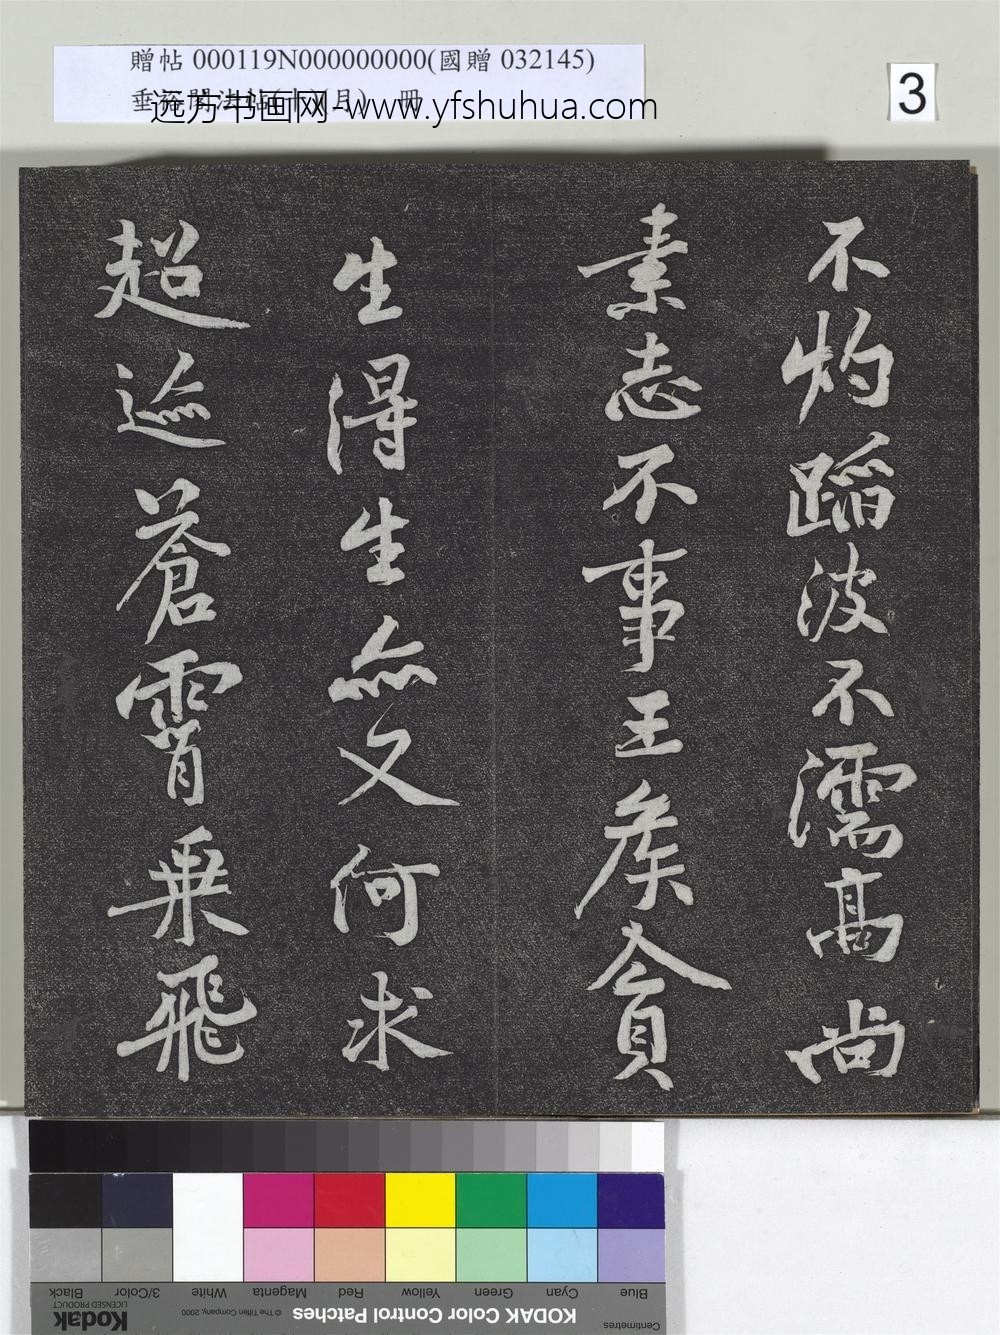 贈帖 000119N000000000(國贈 032145)
远方书画网-www.yfshuhua.com
3
不灼蹈波不濡高尚
素志不事王矦貪
生得生亦又何求
超迹蒼霄乗飛
Black
3/Color
White
Magenta
Red
Yellow
Green
Cyan
Blue
Kodak
LICENSED PRODUCT
© The Tiffen Company, 2000
KODAK Color Control Patches
Centimetres